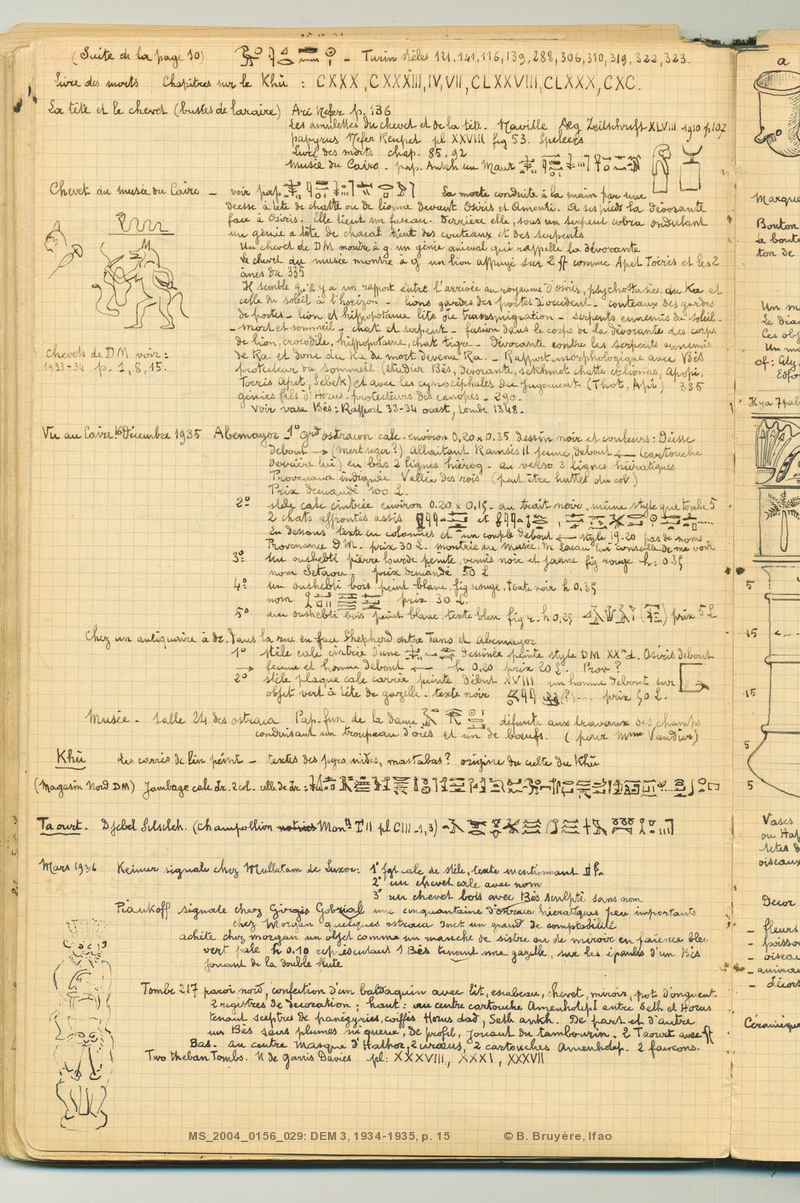 (Suite de la page 10) - Turin stèles 121, 141, 116, 139, 288, 306, 310, 319, 322, 323.
Livre des morts Chapitres sur le Khû : CXXX, CXXXIII, IV, VII, CLXXVIII, CLXXX, CXC.
La tête et le chevet (bustes de laraire) Ari Nefer p. 136
Les amulettes du chevet et de la tête. Naville Aeg Zeitschrift XLVIII 1910 p 107
papyrus Nefer Renpet pl XXVIII fig 53. Speleers
Livre des morts chap. 85. 92
Musée du Caire - pap.
Chevet du musée du Caire - voir pap. La morte conduite à la main par une
déesse à tête de chatte ou de lionne devant Osiris et Amenti. A ses pieds la dévorante
face à Osiris. Elle tient un fuseau. Derrière elle, sous un serpent cobra ondulant
un génie à tête de chacal tient des couteaux et des serpents
Un chevet de DM montre à g. un génie animal qui rappelle la dévorante
Le chevet du musée montre à g un lion appuyé sur 2 comme Apet Toëris et les 2
âmes du 335
Il semble qu'il y a un rapport entre l'arrivée au royaume d'Osiris, psychostasie. du Ka et
celle du soleil à l'horizon - lions gardes des portes d'occident - couteaux des gardes
de portes - lion et hippopotame lits de transmigration - serpents ennemis du soleil -
- mort et sommeil - chat et serpent - fusion dans le corps de la dévorante des corps
de lion, crocodile, hippopotame, chat tigre - Dévorante contre les serpents ennemis
de Ra et donc du Ka du mort devenu Ra. - Rapport morphologique avec Bès
protecteur du sommeil (étudier Bès, dévorante, sekhmet chatte et lionne, Apopi,
Toëris Apet, Sebek) et avec les cynocéphales du jugement (Thot, Api) 335
génies fils d'Horus. protecteurs des canopes - 290.
Voir vase Bès : Rapport 33-34 ouest, tombe 1348.
Chevets de DM voir :
1933-34 p. 1, 8, 15.
Vu au Caire Décembre 1935 Abemayor 1° grd ostracon calc. environ 0,20 x 0.35 dessin noir et couleurs : Déesse
debout → (Mertseger ?) Allaitant Ramsès II jeune, debout ← (cartouche
derrière lui) en bas 2 lignes hiérog. au verso 3 lignes hiératiques
Provenance indiquée Vallée des rois (peut être huttes du col)
Prix demandé 100 £.
2° stèle calc cintrée environ 0.20 x 0,15. au trait noir, même style que tombe 5
2 chats affrontés assis et
En dessous texte en colonnes et un couple debout ← style 19.20 pas de noms.
Provenance D.M. prix 30 £. montrée au Musée. M Lacau lui conseille de me voir
3° un oushebti pierre lourde peinte, vernis noir et jaune fig rouge h. 0.25
nom Setaou. prix demandé 50 £
4° un oushebti bois peint blanc. fig rouge. texte noir h 0.25
nom prix 30 £.
5° un oushebti bois peint blanc texte bleu fig r. h 0,25 prix 5 £
Chez un antiquaire à dr. dans la rue en face Shepherd entre Tano et Abemayor
1° stèle calc cintrée d'une dessinée peinte style DM XXe d. Osiris debout
→ femme et homme debout ← h 0,20 prix 20 £. Prov ?
2° stèle plaque calc carrée peinte Début XVIII un homme debout sur
objet vert à tête de gazelle - texte noir (?) prix 50 £.
Musée - salle 24 des ostraca Pap. fun de la dame difunte aux travaux des champs
conduisant un troupeau d'oies et un de boeufs. (pour Mme Vandier)
Khû les carrés de lin peint - textes des pyramides, mastabas ? origine du culte du Khû
(Magasin Nord DM) Jambage calc dr. 2 col. celle de dr. :
Taourt. Djebel Silsileh. (Champollion notices Monts T II pl CIII - 1, 3) -
Mars 1936 Keimer signale chez Mullatam de Luxor : 1° fgt calc de stèle, texte mentionnant
2° un chevet calc avec nom
3° un chevet bois avec Bès sculpté sans nom
Piankoff signale chez Girgis Gabrial une cinquantaine d'ostraca hiératiques peu importants
chez Morgan quelques ostraca dont un grand de comptabilité
achète chez morgan un objet comme un manche de sistre ou de miroir en faience bleu
vert pâle h 0.10 représentant 1 Bès tenant une gazelle, sur les épaules d'un Bès
jouant de la double flute
Tombe 217 paroi nord, confection d'un baldaquin avec lit, escabeau, chevet, miroir, pot d'onguent.
2 registres de décoration ; haut : au centre cartouche Amenhotep I entre Seth et Horus
tenant sceptres de panégyries, coiffés Horus dad, Seth ankh. De part et d'autre
un Bès sans plumes ni queue, de profil, jouant du tambourin. 2 Taourt avec
Bas - au centre masque d'Hathor, 2 uraeus, 2 cartouches Amenhotep. 2 faucons.
Two theban Tombs. N de Garris Davies pl : XXXVIII, XXXI, XXXVII
a
Marque
Bouton
Le bouto
ton de
Un m
Le dia
Ces obj
Un me
cf : Gly.
Esfo
5
15
15
5
5
Vases
ou Hat
têtes d
oiseaux
Decor
- fleurs
- poisso
- oiseau
- animau
- décors
Céramique
MS_2004_0156_029: DEM 3, 1934-1935, p. 15 © B. Bruyère, Ifao